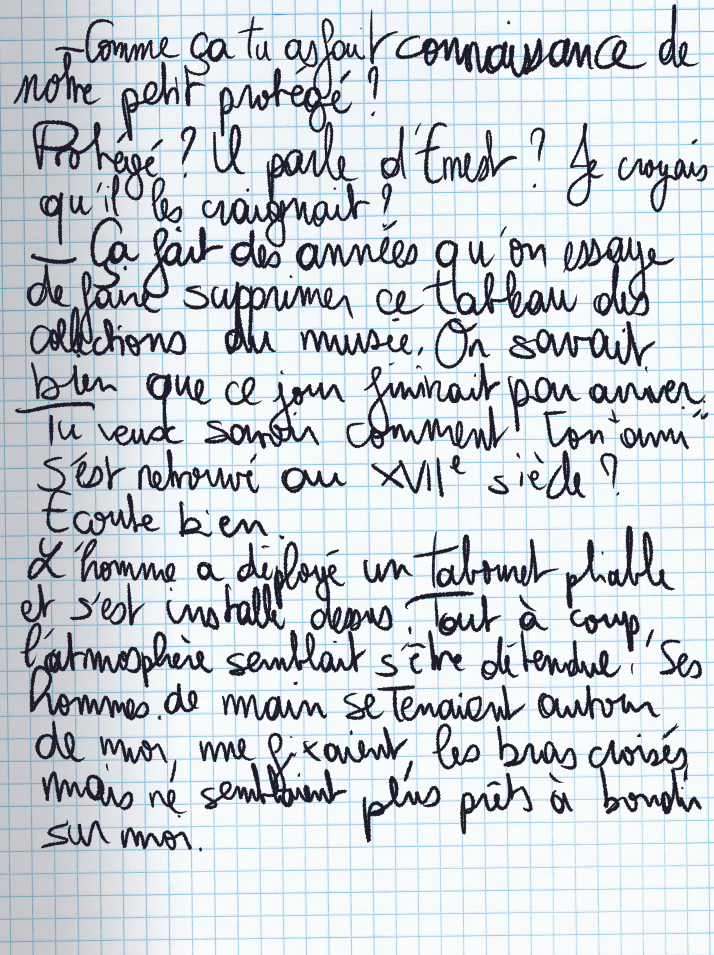 – Comme ça tu as fait connaissance de
notre petit protégé ?
Protégé ? Il parle d'Ernest ? Je croyais
qu'il les craignait ?
– Ça fait des années qu'on essaye
de faire supprimer ce tableau des
collections du musée. On savait
bien que ce jour finirait par arriver.
Tu veux savoir comment "ton ami"
s'est retrouvé au XVIIe siècle ?
Ecoute bien.
L'homme a déployé un tabouret pliable
et s'est installé dessus. Tout à coup,
l'atmosphère semblait s'être détendue. Ses
hommes de main se tenaient autour
de moi, me fixaient, les bras croisés,
mais ne semblaient plus prêts à bondir
sur moi.